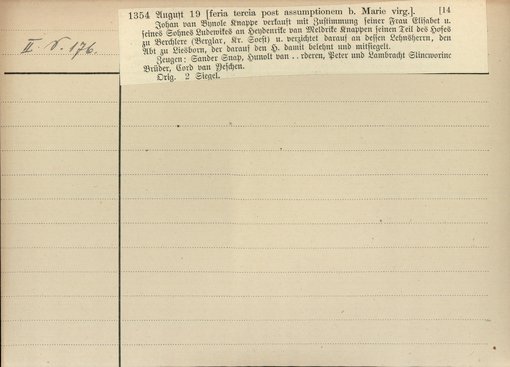 1354 August 19 [feria tercia post assumptionem b. Marie virg.]. [14
Johan van Bynole Knappe verkauft mit Zustimmung seiner Frau Elisabet u.
seines Sohnes Ludewikes an Heydenrike van Meldrike Knappen seinen Teil des Hofes
zu Berchlere (Berglar, Kr. Soest) u. verzichtet darauf an dessen Lehnsherrn, den
Abt zu Liesborn, der darauf den H. damit belehnt und mitsiegelt.
Zeugen: Sander Snap, Hunolt van . . rderen, Peter und Lambracht Slineworine
Brüder, Cord van Beschen.
Orig. 2 Siegel.
II V. 176.